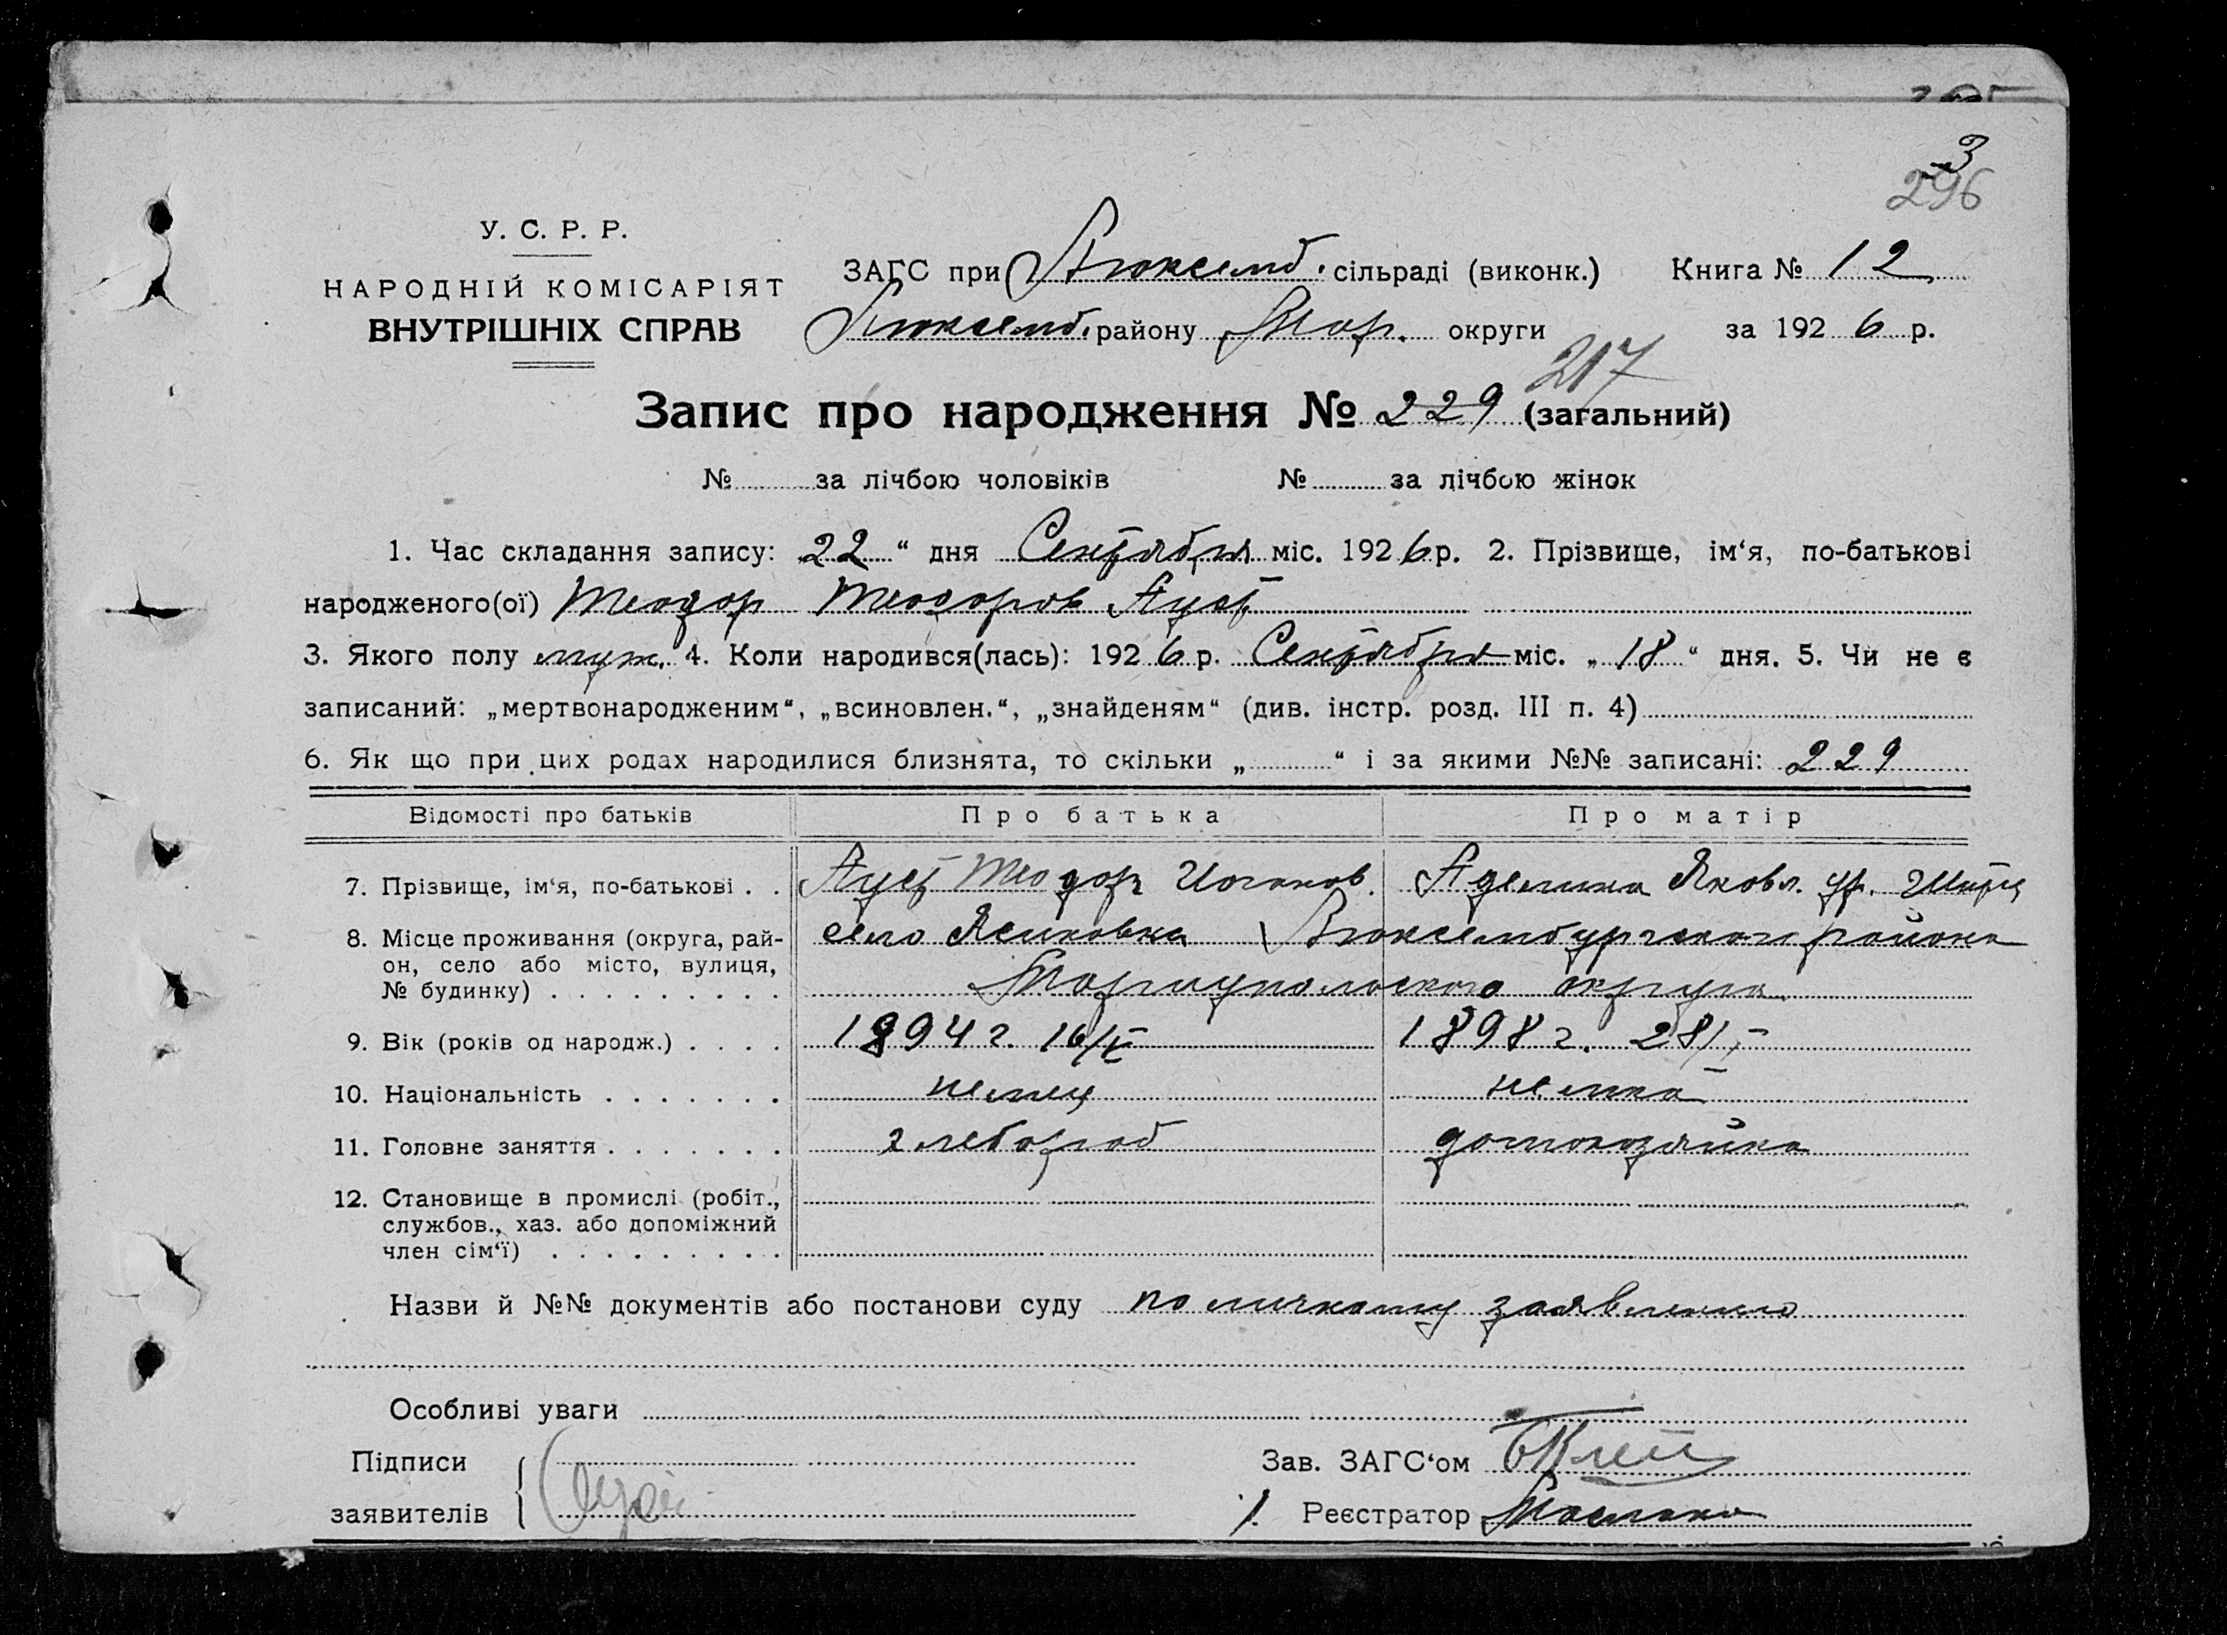 3
296
У. С. Р. Р.
НАРОДНІЙ КОМІСАРІЯТ
ВНУТРІШНІХ СПРАВ
ЗАГС при Люксемб. сільраді (виконк.) Книга № 12
Люксемб. району Мар. округи за 192 6 р.
217
Запис про народження № 229 (загальний)
№ за лічбою чоловіків № за лічбою жінок
1. Час складання запису: 22 “ дня Сентября міс. 192 6 р. 2. Прізвище, ім‘я, по-батькові
народженого(ої) Теодор Теодоров Ауст
3. Якого полу муж. 4. Коли народився(лась): 192 6 р. Сентября міс. „ 18 “ дня. 5. Чи не є
записаний: „мертвонародженим“, „всиновлен.“, „знайденям“ (див. інстр. розд. III п. 4)
6. Як що при цих родах народилися близнята, то скільки „ “ і за якими №№ записані: 229
Відомості про батьків Про батька Про матір
7. Прізвище, ім‘я, по-батькові . . Ауст Теодор Иоганов. Аделина Яковл.
8. Місце проживання (округа, рай-
он, село або місто, вулиця,
№ будинку) . . . . . . . . .
село Ясиновка Люксембургского района
Мариупольского округа
9. Вік (років од народж.) . . . . 1894 г. 16/ 1898 г. 28/
10. Національність . . . . . . . немец немка
11. Головне заняття . . . . . . . хлебороб домохозяйка
12. Становище в промислі (робіт.,
службов., хаз. або допоміжний
член сім‘ї) . . . . . . . . .
Назви й №№ документів або постанови суду по личному заявлению
Особливі уваги
Підписи
заявителів
Зав. ЗАГС‘ом
Реєстратор